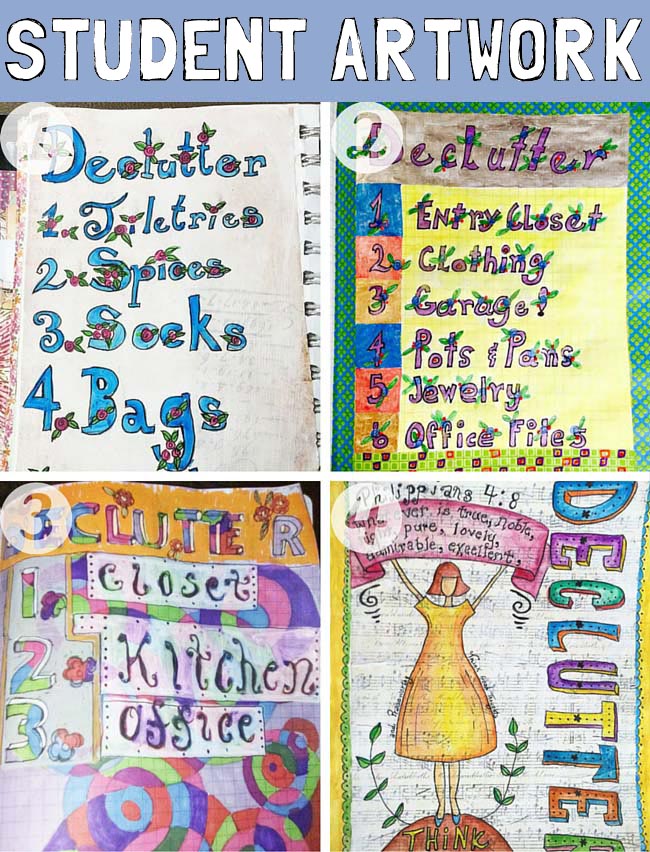 STUDENT ARTWORK
1
Declutter
1. Tiletries
2. Spices
3. Socks
4. Bags
2
Declutter
1 Entry Closet
2 Clothing
3 Garage!
4 Pots & Pans
5 Jewelry
6 Office Files
3
CLUTTER
1. Closet
2. Kitchen
3. Office
4
Philippians 4:8
ever is true, noble,
pure, lovely,
admirable, excellent,
THINK
DECLUTTER